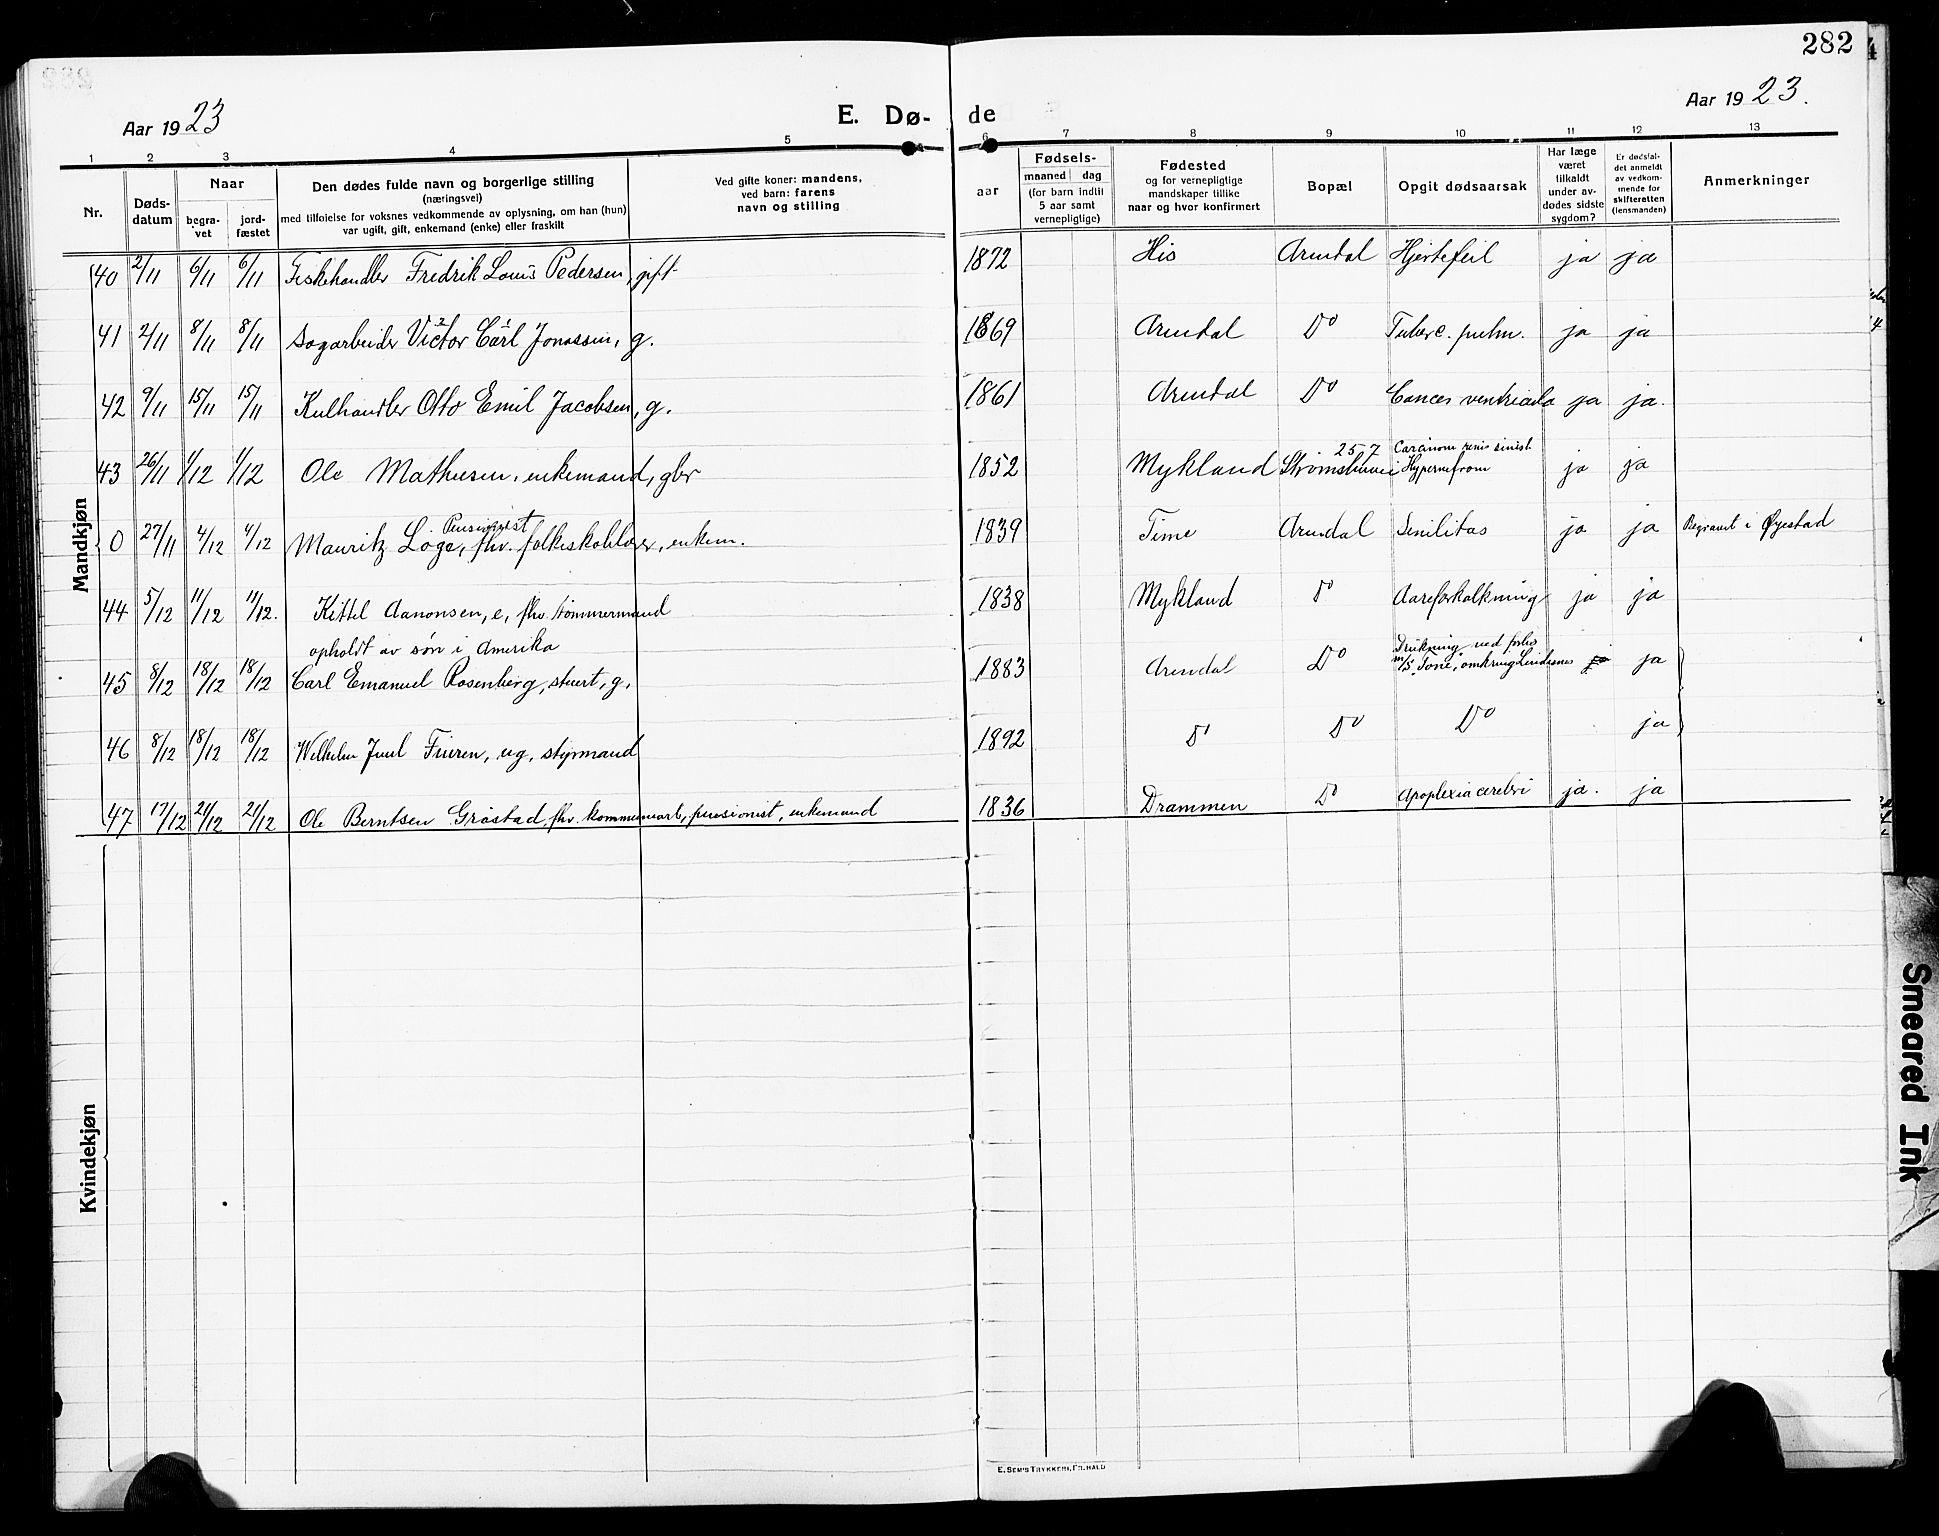 282
Aar 1923
E. Dø-
de
Aar 1923.
1 2 3 4 5 6 7 8 9 10 11 12 13
Nr.
Døds-
datum
Naar
begra-
vet
jord-
fæstet
Den dødes fulde navn og borgerlige stilling
(næringsvei)
med tilføielse for voksnes vedkommende av oplysning, om han (hun)
var ugift, gift, enkemand (enke) eller fraskilt
Ved gifte koner: mandens,
ved barn: farens
navn og stilling
aar
Fødsels-
maaned dag
(for barn indtil
5 aar samt
vernepligtige)
Fødested
og for vernepligtige
mandskaper tillike
naar og hvor konfirmert
Bopæl
Opgit dødsaarsak
Har læge
været
tilkaldt
under av-
dødes sidste
sygdom?
Er dødsfal-
det anmeldt
av vedkom-
mende for
skifteretten
(lensmanden)
Anmerkninger
Mandkjøn
40 2/11 6/11 6/11 Fiskehandler Fredrik Louis Pedersen, gift 1872 His Arendal Hjertefeil ja ja
41 2/11 8/11 8/11 Sagarbeider Victor Carl Jonassen, g. 1869 Arendal Do Tuberc. pulm. ja ja
42 9/11 15/11 15/11 Kulhandler Otto Emil Jacobsen, g. 1861 Arendal Do Cancer ventriculo ja ja.
257 Carcinom renis sinist.
43 26/11 1/12 1/12 Ole Mathisen, enkemand, gbr 1852 Mykland Strømsbuvei Hypernefrom ja ja
Pensionist
0 27/11 4/12 4/12 Mauritz Løge, fhv. folkeskolelærer, enkem. 1839 Time Arendal Senilitas ja ja Begravet i Øyestad
44 5/12 11/12 11/12. Kittel Aanonsen, e, fhv. tømmermand 1838 Mykland Do Aareforkalkning ja ja
opholdt av søn i Amerika
Drukning ved forlis
45 8/12 18/12 18/12 Carl Emanuel Rosenberg, stuert, g. 1883 Arendal Do m/s "Tone", omkring Lindesnes ja ja
46 8/12 18/12 18/12 Wilhelm Juul Furen, ug, styrmand 1892 Do Do Do ja
47 17/12 21/12 21/12 Ole Berntsen Grøstad, fhv. kommunearb, pensionist, enkemand 1836 Drammen Do Apoplexia cerebri ja. ja
Kvindekjøn
E. Sem's Trykkeri, Fr.hald
Smeared Ink